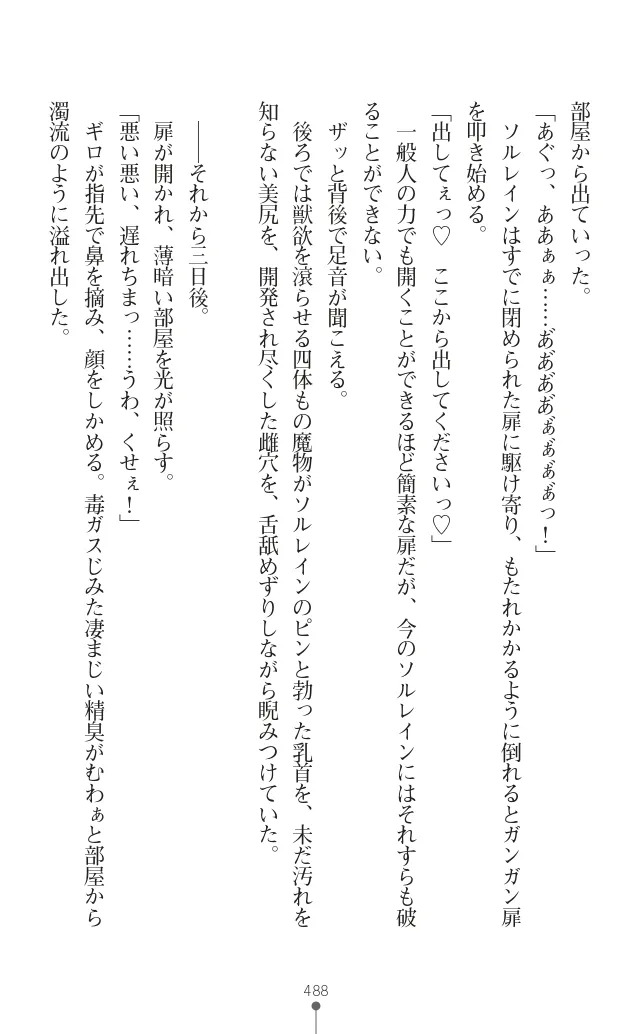 部屋から出ていった。
「あぐっ、ああぁぁ……あ゛あ゛あ゛あ゛ぁ゛ぁ゛ぁ゛ぁ゛っ！」
　ソルレインはすでに閉められた扉に駆け寄り、もたれかかるように倒れるとガンガン扉
を叩き始める。
「出してぇっ♡　ここから出してくださいっ♡」
　一般人の力でも開くことができるほど簡素な扉だが、今のソルレインにはそれすらも破
ることができない。
　ザッと背後で足音が聞こえる。
　後ろでは獣欲を滾らせる四体もの魔物がソルレインのピンと勃った乳首を、未だ汚れを
知らない美尻を、開発され尽くした雌穴を、舌舐めずりしながら睨みつけていた。
　――それから三日後。
　扉が開かれ、薄暗い部屋を光が照らす。
「悪い悪い、遅れちまっ……うわ、くせぇ！」
　ギロが指先で鼻を摘み、顔をしかめる。毒ガスじみた凄まじい精臭がむわぁと部屋から
濁流のように溢れ出した。
488